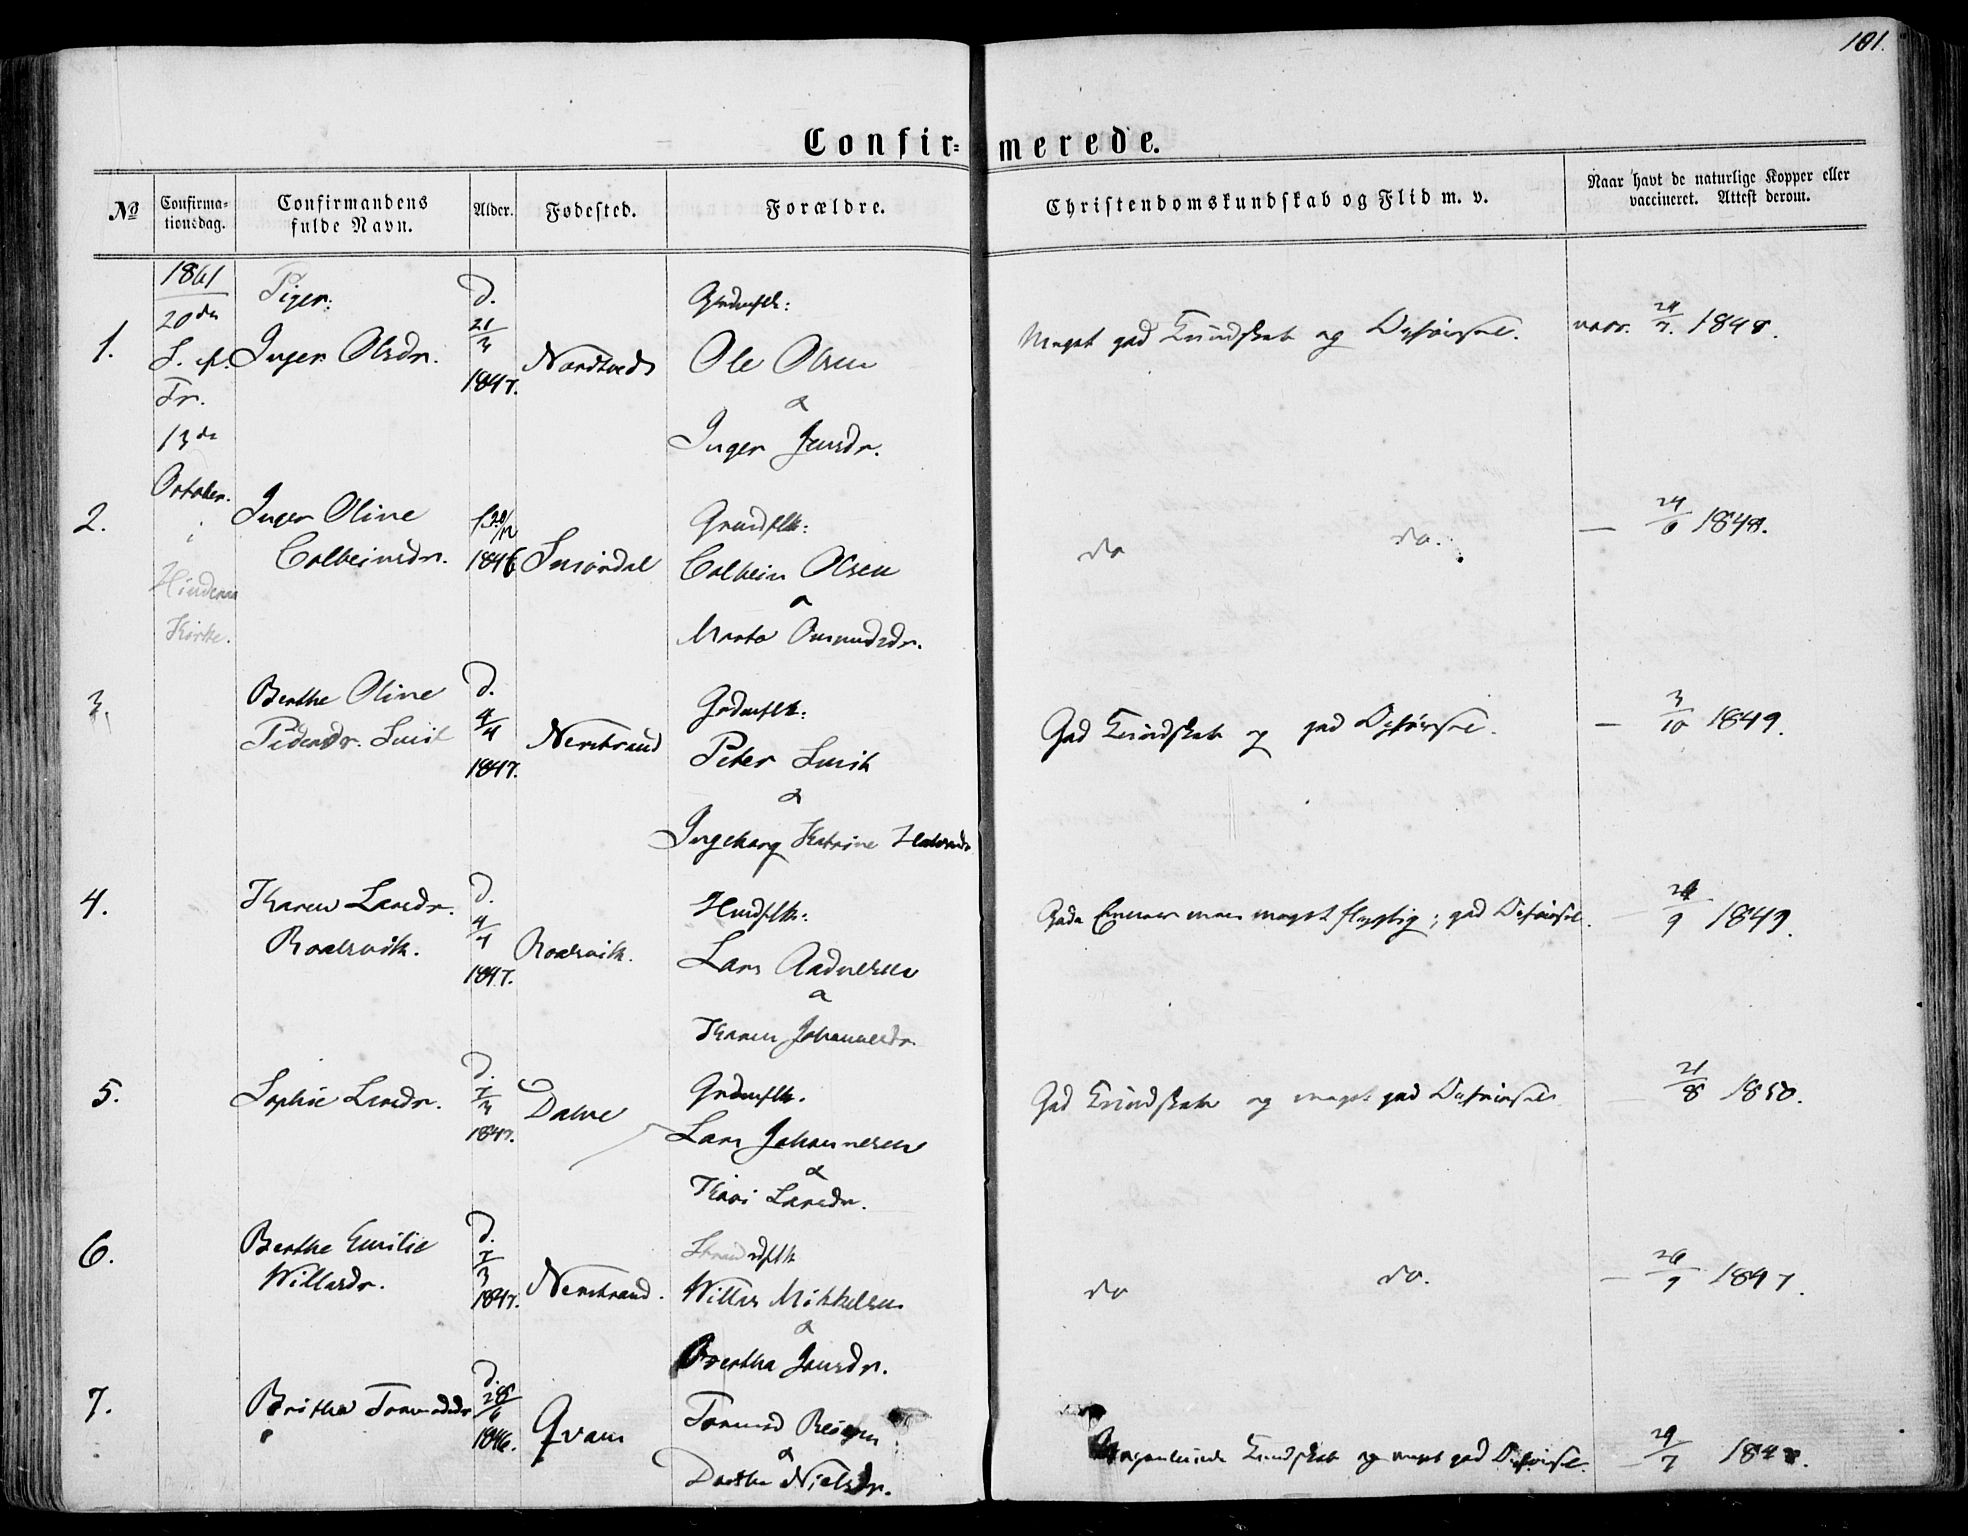 181.
Confir= merede.
No
Confirma-
tionsdag.
Confirmandens
fulde Navn.
Alder.
Fødested.
Forældre.
Christendomskundskab og Flid m. v.
Naar havt de naturlige Kopper eller
vaccineret. Attest derom.
1861
20de
S. ef.
Tr.
13de
October.
i
Kirke.
Piger:
1.
Inger Olsdr.
d.
21/3
1847.
Nordtvedt
Ole Olsen
&
Inger Jensdr.
Meget god Kundskab og Opførsel.
vacc. 24/7. 1848.
2.
Inger Oline
Colbeinsdr.
f. 20/12
1846
Smördal
Colbein Olsen
&
Marta Osmundsdr.
do do.
— 24/6 1848.
3.
Berthe Oline
Pedersdr. Smit
d.
4/4
1847.
Nerstrand
Peter Smith
&
Ingeborg Katrine
God Kundskab og god Opførsel.
— 3/10 1849.
4.
Karen Larsdr.
Roalsvik.
d.
4/4
1847.
Roalsvik.
Lars Aadnesen
&
Karen Johannesdr.
Gode Evner men meget flygtig; god Opførsel.
— 24/9 1849.
5.
Sophie Larsdr.
d.
7/3
1847.
Dalve
Lars Johannesen
&
Kari Larsdr.
God Kundskab og meget god Opførsel
21/8 1850.
6.
Berthe Emilie
Willasdr.
d.
7/3
1847.
Nerstrand.
Willas Mikkelsen
&
Bertha Jansdr.
do do.
— 26/7 1847.
7.
Britha Tormodsdr
d.
28/6
1846.
Qvam
Tormod
&
Dorthe Nielsdr.
Kundskab og meget god Opførsel.
— 29/7 1848.